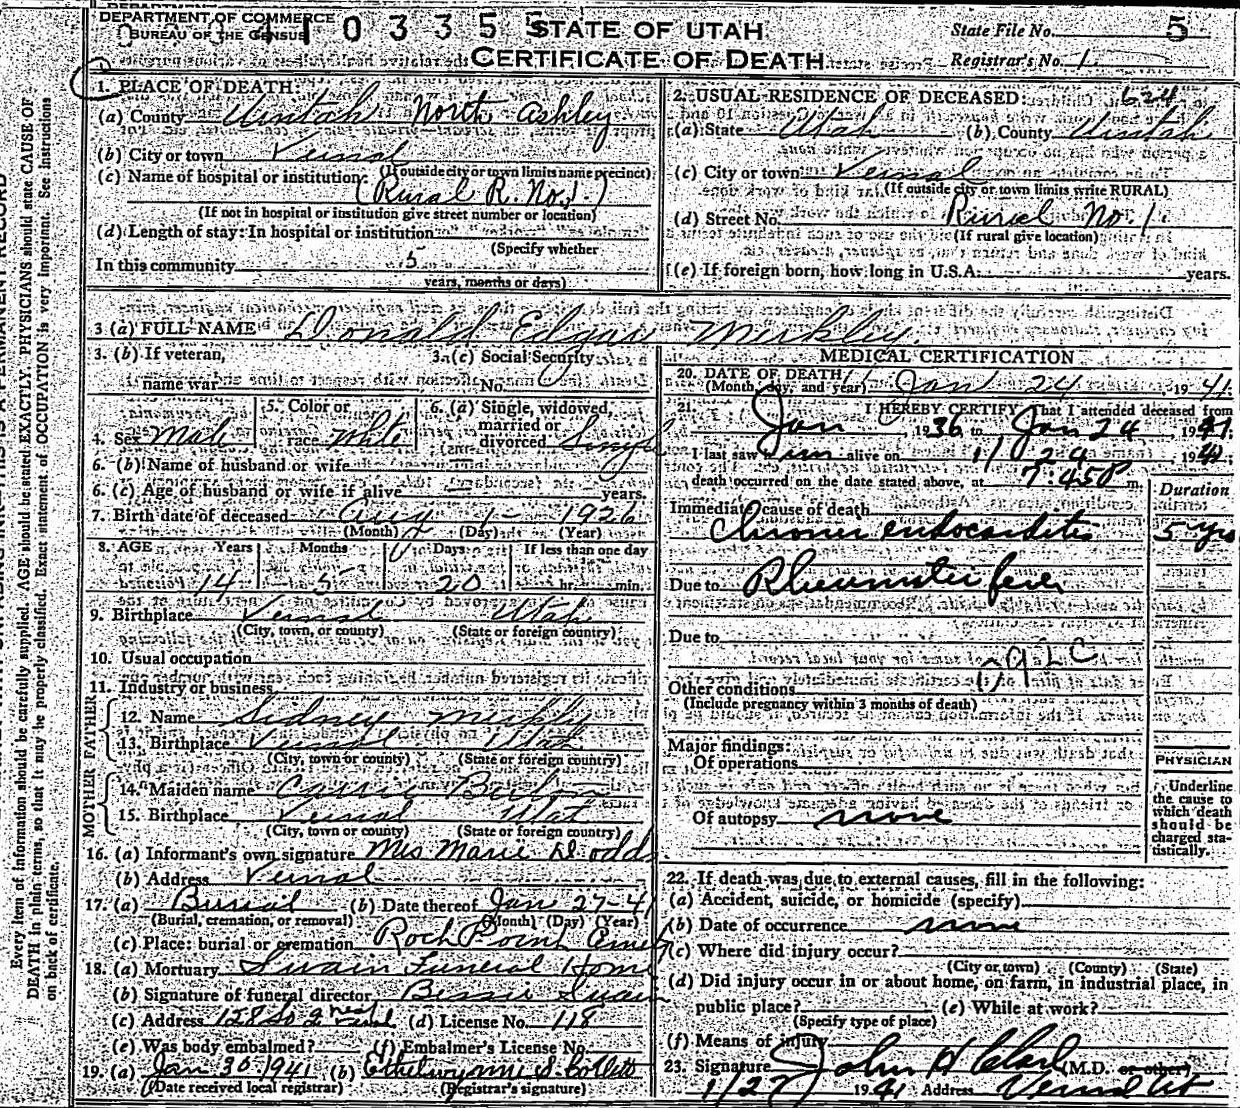 DEPARTMENT OF COMMERCE
BUREAU OF THE CENSUS
0335
STATE OF UTAH
CERTIFICATE OF DEATH
State File No. 5
Registrar's No. 1
1. PLACE OF DEATH:
(a) County Uintah North Ashley
(b) City or town Vernal
(If outside city or town limits name precinct)
(c) Name of hospital or institution:
(Rural R. No. 1.)
(If not in hospital or institution give street number or location)
(d) Length of stay: In hospital or institution
(Specify whether
In this community 5
years, months or days)
2. USUAL RESIDENCE OF DECEASED: 624
(a) State Utah (b) County Uintah
(c) City or town Vernal
(If outside city or town limits write RURAL)
(d) Street No. Rural No 1.
(If rural give location)
(e) If foreign born, how long in U.S.A. years.
3 (a) FULL NAME Donald Edgar Merkley.
3. (b) If veteran,
name war
3. (c) Social Security
No.
4. Sex Male
5. Color or
race White
6. (a) Single, widowed,
married or
divorced Single
6. (b) Name of husband or wife —
6. (c) Age of husband or wife if alive — years.
7. Birth date of deceased Aug 1 - 1926
(Month) (Day) (Year)
8. AGE Years Months Days If less than one day
14 5 20 hr. min.
9. Birthplace Vernal Utah
(City, town, or county) (State or foreign country)
10. Usual occupation
11. Industry or business
FATHER
12. Name Sidney Merkly
13. Birthplace Vernal Utah
(City, town or county) (State or foreign country)
MOTHER
14. Maiden name Carrie
15. Birthplace Vernal Utah
(City, town or county) (State or foreign country)
16. (a) Informant's own signature Mrs Marie Dodds
(b) Address Vernal
17. (a) Burial (b) Date thereof Jan 27-41
(Burial, cremation, or removal) (Month) (Day) (Year)
(c) Place: burial or cremation Rock Point Emet
18. (a) Mortuary Swain Funeral Home
(b) Signature of funeral director Bessie Swain
(c) Address 128 So 2nd West (d) License No. 118
(e) Was body embalmed? (f) Embalmer's License No.
19. (a) Jan. 30-1941 (b) Ethelwynne S. Colletti
(Date received local registrar) (Registrar's signature)
MEDICAL CERTIFICATION
20. DATE OF DEATH
(Month, day, and year) Jan 24, 1941.
21. I HEREBY CERTIFY That I attended deceased from
Jan, 1936 to Jan 24, 1941.
I last saw him alive on 1/24 1941
death occurred on the date stated above, at 7:45 P m.
Duration
Immediate cause of death
Chronic endocarditis 5 yrs
Due to Rheumatic fever
Due to
Other conditions
(Include pregnancy within 3 months of death)
Major findings:
Of operations
Of autopsy none
PHYSICIAN
Underline
the cause to
which death
should be
charged sta-
tistically.
22. If death was due to external causes, fill in the following:
(a) Accident, suicide, or homicide (specify)
(b) Date of occurrence none
(c) Where did injury occur?
(City or town) (County) (State)
(d) Did injury occur in or about home, on farm, in industrial place, in
public place? (e) While at work?
(Specify type of place)
(f) Means of injury
23. Signature John H Clark (M.D. or other)
1/27 1941 Address Vernal Ut
Every item of information should be carefully supplied. AGE should be stated EXACTLY. PHYSICIANS should state CAUSE OF
DEATH in plain terms, so that it may be properly classified. Exact statement of OCCUPATION is very important. See instructions
on back of certificate.